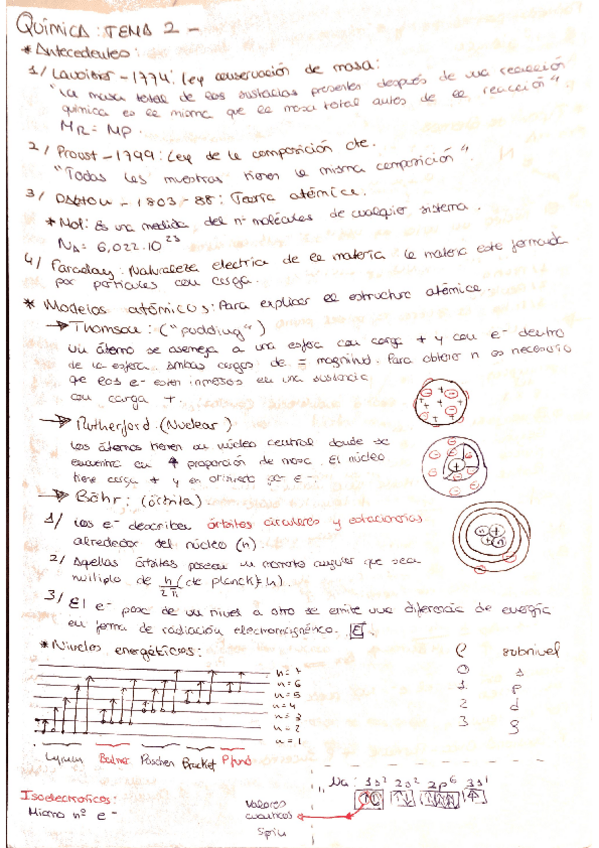 QUÍMICA: TEMA 2 -
* Antecedentes:
1/ Lavoisier - 1774: Ley conservación de masa:
"La masa total de las sustacias presentes después de una reacción
química es la misma que la masa total antes de la reacción"
MR = MP.
2/ Proust - 1799: Ley de la composición cte.
"Todas las muestras tienen la misma composición".
3/ Dalton - 1803 - 88: Teoría atómica.
* Mol: es una medida del nº moléculas de cualquier sistema.
NA = 6,022·10²³
4/ Faraday: Naturaleza electrica de la materia. la materia este formada
por partículas con carga.
* Modelos atómicos: Para explicar la estructura atómica.
→ Thomson: ("pudding")
Un átomo se asemeja a una esfera con carga + y con e- dentro
de la esfera. Ambas cargas de = magnitud. Para obtener n es necesario
que los e- esten inmersos en una sustancia
con carga +.
→ Rutherford. (Nuclear)
Los átomos tienen un núcleo central donde se
encuentra en ↑ proporción de masa. El núcleo
tiene carga + y por e-.
→ Böhr: (órbita).
1/ Los e- describen órbitas circulares y estacionarias
alrededor del núcleo (n).
2/ Aquellas órbitas poseen un momento angular que sea
multiplo de h/2π (cte planck = h).
3/ El e- pasa de un nivel a otro se emite una diferencia de energía
en forma de radiación electromagnética. E
* Niveles energéticos:
n = 7
n = 6
n = 5
n = 4
n = 3
n = 2
n = 1
Lyman Balmer Paschen Bracket Pfund
l subnivel
0 s
1 p
2 d
3 f
Isoelectronicos:
Mismo nº e-
Valores
cuanticos
spin
Na: 1s² 2s² 2p⁶ 3s¹